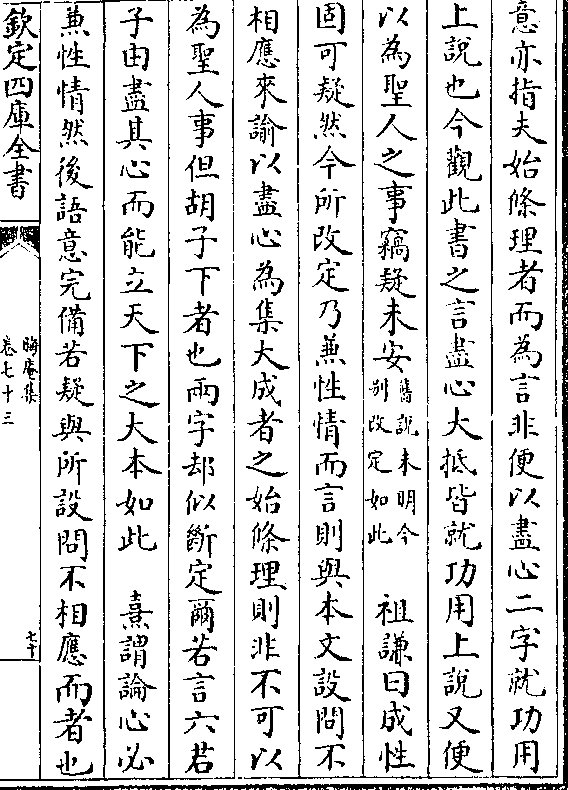 意亦指夫始條理者而為言非便以盡心二字就功用
上說也今觀此書之言盡心大抵皆就功用上說又便
以為聖人之事竊疑未安舊說未明今別改定如此　祖謙曰成性
固可疑然今所改定乃兼性情而言則與本文設問不
相應來諭以盡心為集大成者之始條理則非不可以
為聖人事但胡子下者也兩字却似斷定爾若言六若
子由盡其心而能立天下之大本如此　熹謂論心必
兼性情然後語意完備若疑與所設問不相應而者也
欽定四庫全書
晦庵集
卷七十三
七十